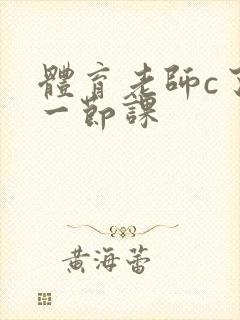 體育老師c了
一節課
黃海蕾